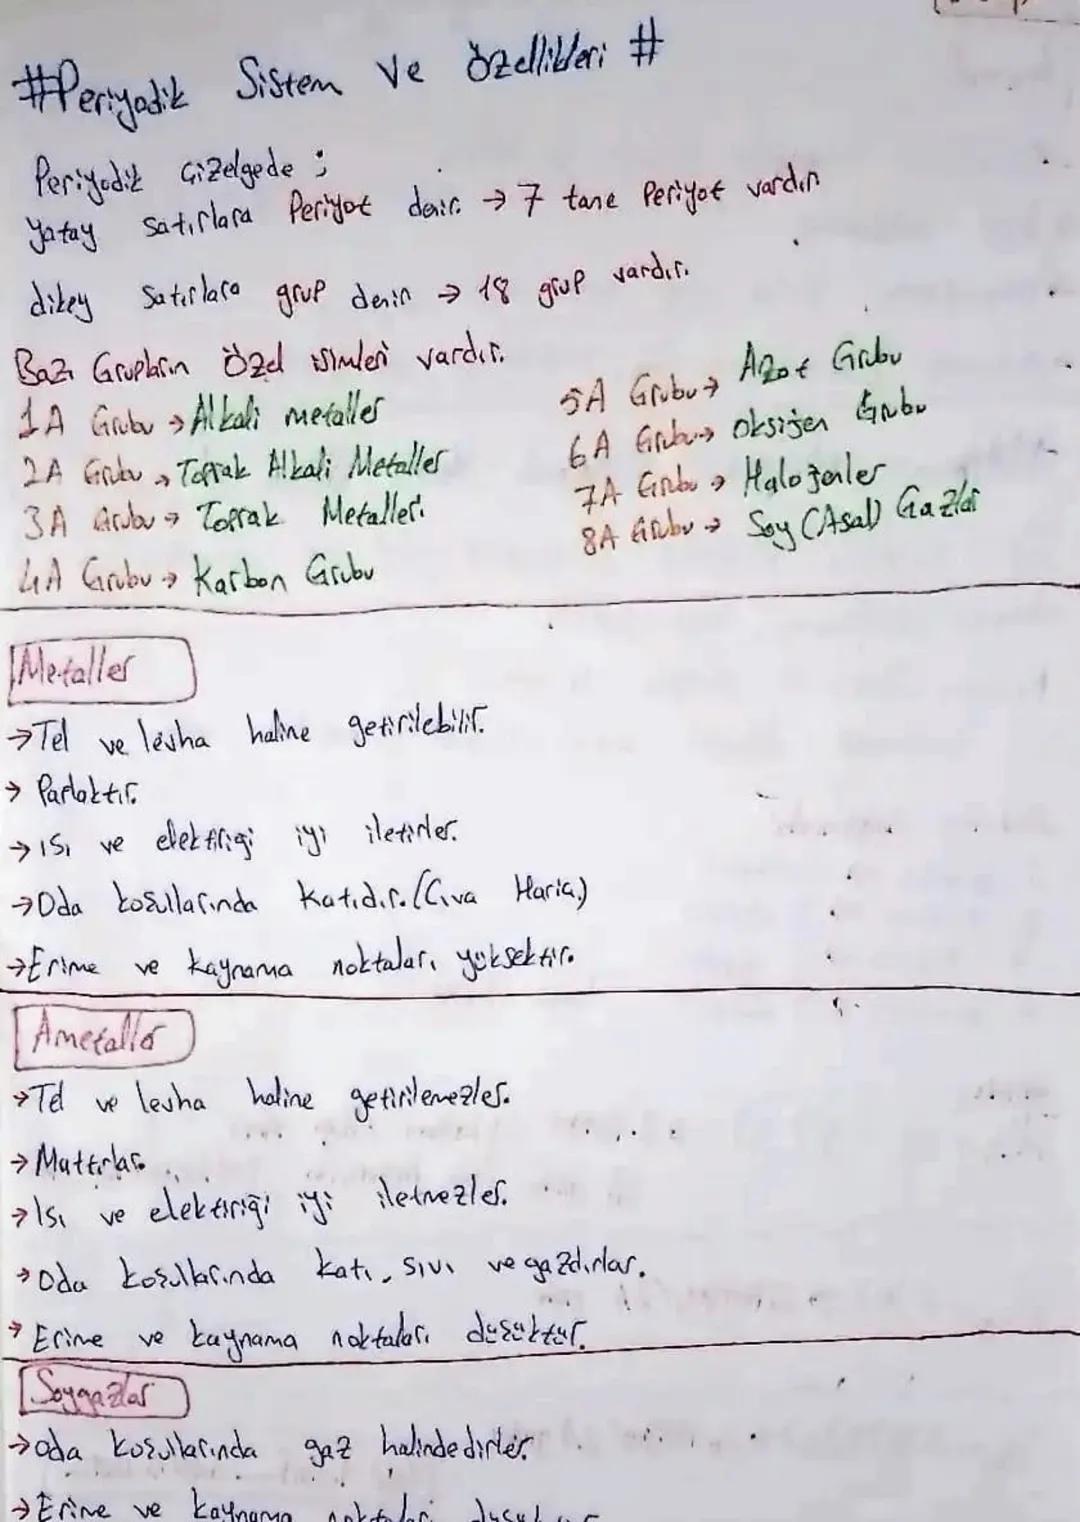 #Periyodik Sistem ve özellikleri #
Periyodik Çizelgede ;
yatay satırlara Periyot denir. → 7 tane Periyot vardır
dikey satırlara grup denir → 18 grup vardır.
Bazı Grupların Özel isimleri vardır.
1A Grubu → Alkali metaller
2A Grubu → Toprak Alkali Metaller
3A Grubu → Toprak Metalleri
4A Grubu → Karbon Grubu
5A Grubu → Azot Grubu
6A Grubu → Oksijen Grubu
7A Grubu → Halojenler
8A Grubu → Soy (Asal) Gazlar
Metaller
→ Tel ve levha haline getirilebilir.
→ Parlaktır.
→ ısı ve elektiriği iyi iletirler.
→ Oda koşullarında katıdır. (Cıva Hariç)
→ Erime ve kaynama noktaları yüksektir.
Ametaller
→ Tel ve levha haline getirilemezler.
→ Mattırlar.
→ Isı ve elektiriği iyi iletmezler.
→ Oda koşullarında katı, sıvı ve gazdırlar.
→ Erime ve kaynama noktaları düşüktür.
Soygazlar
→ Oda koşullarında gaz halindedirler.
→ Erime ve kaynama noktaları